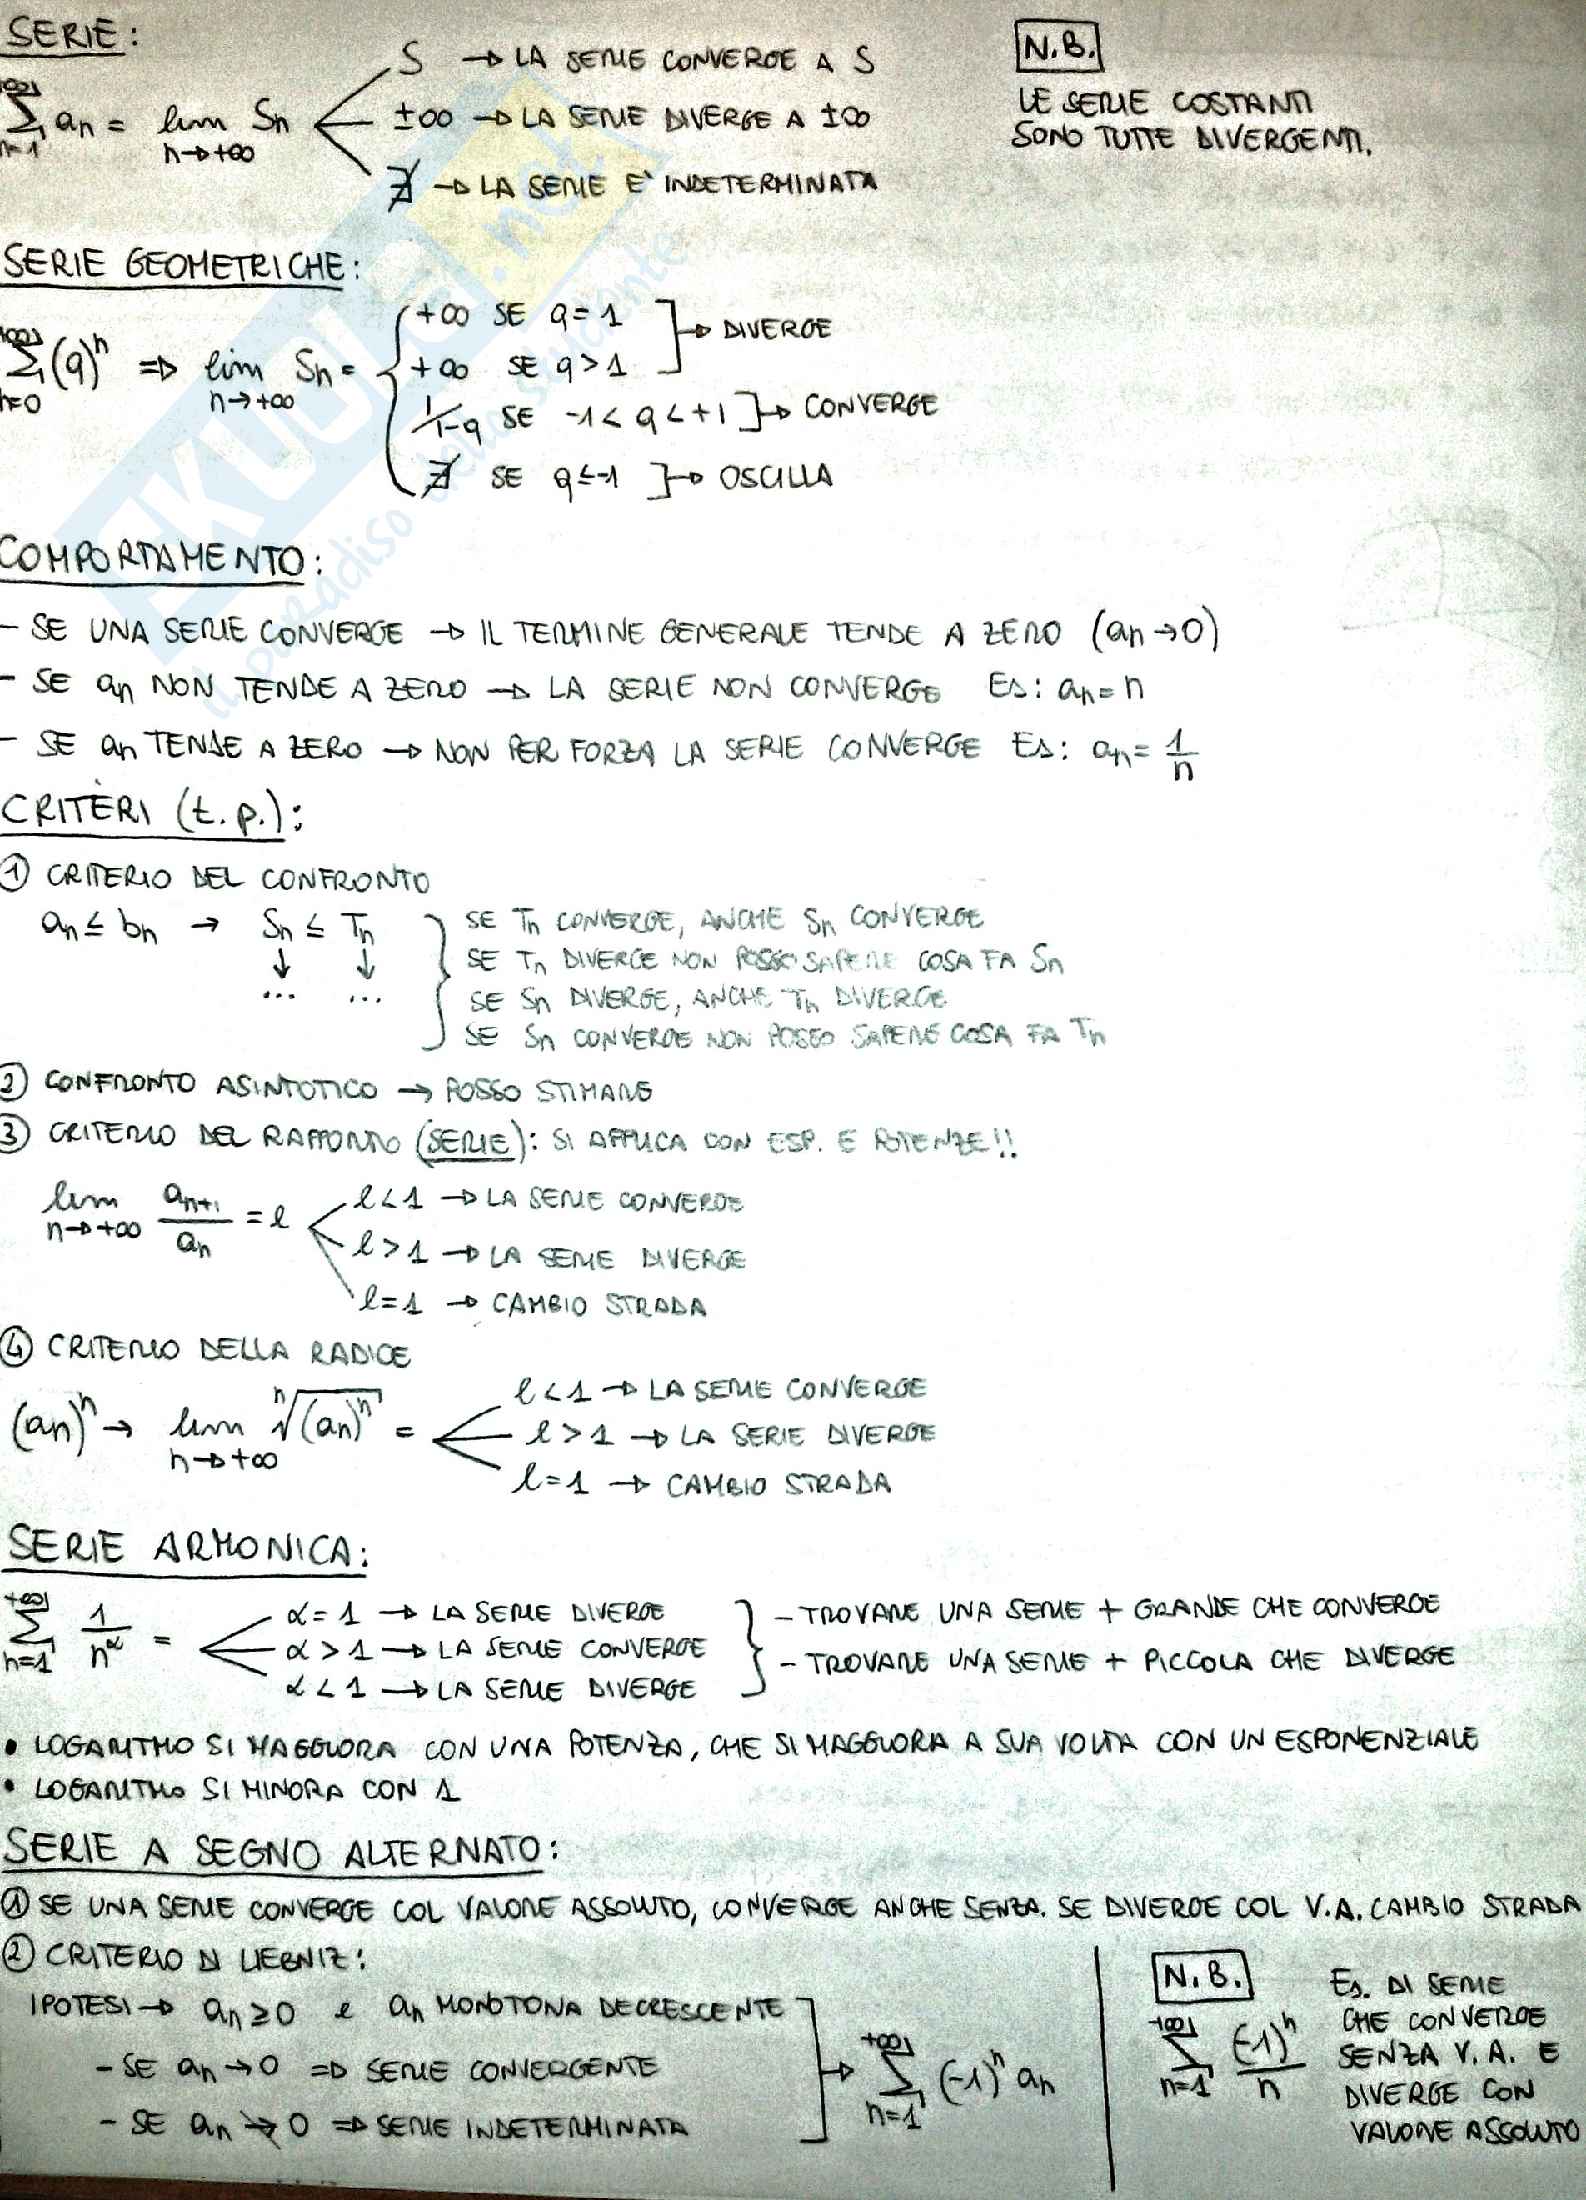 SERIE:
+∞ Σ n=1 an = lim n→+∞ Sn
S → LA SERIE CONVERGE A S
±∞ → LA SERIE DIVERGE A ±∞
∄ → LA SERIE E' INDETERMINATA
N.B.
LE SERIE COSTANTI
SONO TUTTE DIVERGENTI.
SERIE GEOMETRICHE:
+∞ Σ n=0 (q)^n ⇒ lim n→+∞ Sn =
+∞ SE q=1
+∞ SE q>1
→ DIVERGE
1/1-q SE -1<q<+1 → CONVERGE
∄ SE q≤-1 → OSCILLA
COMPORTAMENTO:
- SE UNA SERIE CONVERGE → IL TERMINE GENERALE TENDE A ZERO (an→0)
- SE an NON TENDE A ZERO → LA SERIE NON CONVERGE Es: an=n
- SE an TENDE A ZERO → NON PER FORZA LA SERIE CONVERGE Es: an=1/n
CRITERI (t.p.):
① CRITERIO DEL CONFRONTO
an ≤ bn → Sn ≤ Tn
↓ ↓
... ...
SE Tn CONVERGE, ANCHE Sn CONVERGE
SE Tn DIVERGE NON POSSO SAPERE COSA FA Sn
SE Sn DIVERGE, ANCHE Tn DIVERGE
SE Sn CONVERGE NON POSSO SAPERE COSA FA Tn
② CONFRONTO ASINTOTICO → POSSO STIMARE
③ CRITERIO DEL RAPPORTO (SERIE): SI APPLICA CON ESP. E POTENZE!!
lim n→+∞ an+1/an = l
l<1 → LA SERIE CONVERGE
l>1 → LA SERIE DIVERGE
l=1 → CAMBIO STRADA
④ CRITERIO DELLA RADICE
(an)^n → lim n→+∞ ⁿ√(an)^n =
l<1 → LA SERIE CONVERGE
l>1 → LA SERIE DIVERGE
l=1 → CAMBIO STRADA
SERIE ARMONICA:
+∞ Σ n=1 1/n^α =
α=1 → LA SERIE DIVERGE
α>1 → LA SERIE CONVERGE
α<1 → LA SERIE DIVERGE
- TROVARE UNA SERIE + GRANDE CHE CONVERGE
- TROVARE UNA SERIE + PICCOLA CHE DIVERGE
• LOGARITMO SI MAGGIORA CON UNA POTENZA, CHE SI MAGGIORA A SUA VOLTA CON UN ESPONENZIALE
• LOGARITMO SI MINORA CON 1
SERIE A SEGNO ALTERNATO:
① SE UNA SERIE CONVERGE COL VALORE ASSOLUTO, CONVERGE ANCHE SENZA. SE DIVERGE COL V.A. CAMBIO STRADA
② CRITERIO DI LIEBNIZ:
IPOTESI → an≥0 e an MONOTONA DECRESCENTE
- SE an→0 ⇒ SERIE CONVERGENTE
- SE an↛0 ⇒ SERIE INDETERMINATA
→ +∞ Σ n=1 (-1)^n an
N.B.
+∞ Σ n=1 (-1)^n/n
Es. DI SERIE
CHE CONVERGE
SENZA V.A. E
DIVERGE CON
VALORE ASSOLUTO
SKUOLA.net
il paradiso dello studente